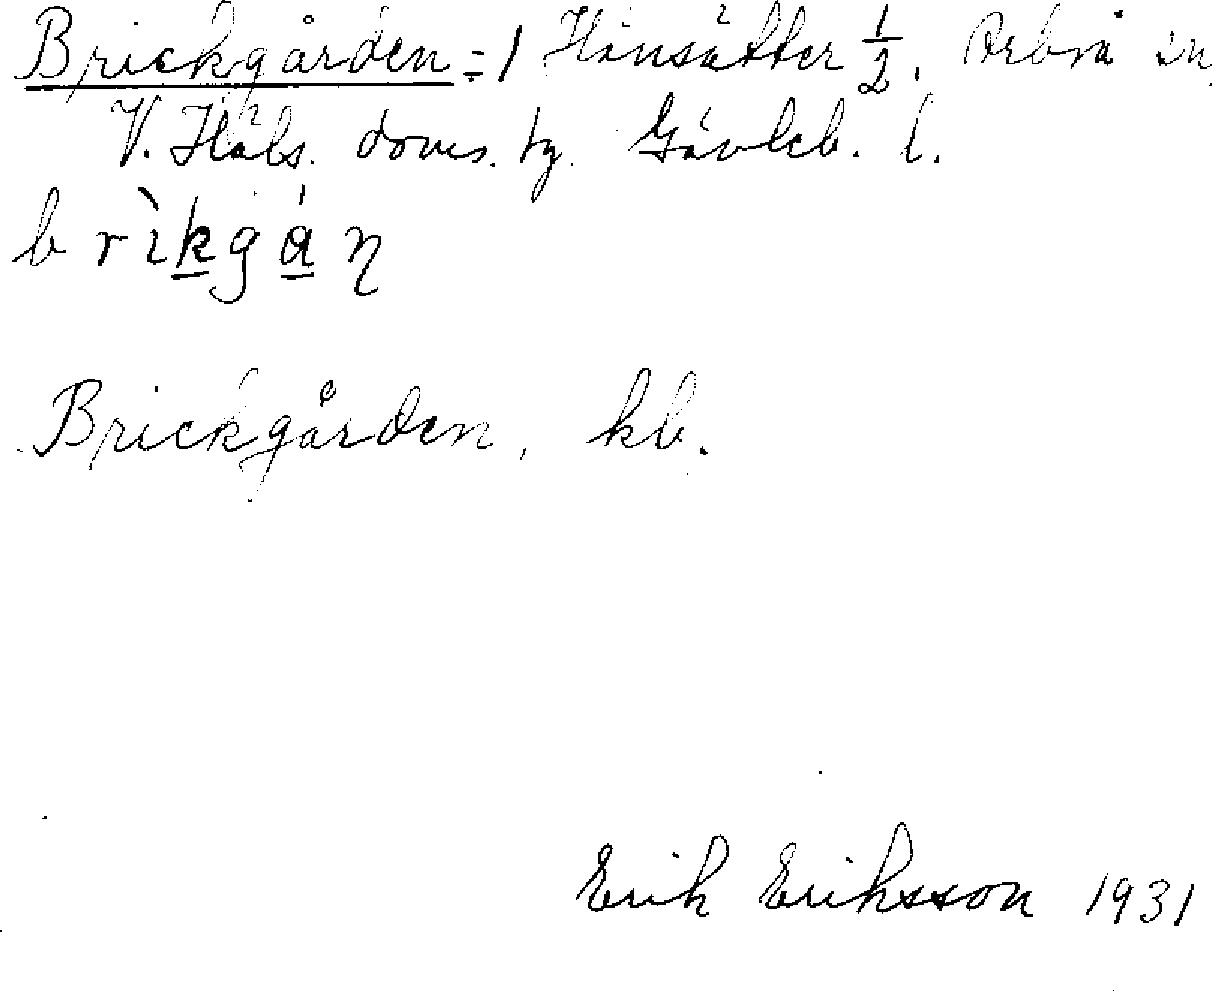 Brickgården = 1 Hånsätter 1/2, Arbrå sn,
V. Häls. doms. tg. Gävleb. l.
b r ì k g á ŋ
Brickgården, kb.
Erik Eriksson 1931